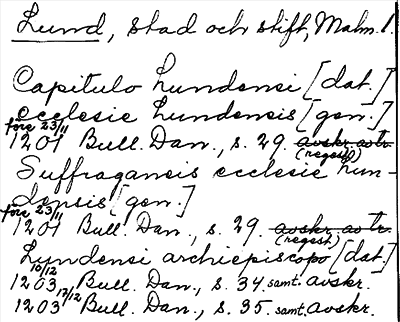 Lund, stad och stift, Malm. l.
Capitulo Lundensi [dat.]
ecclesie Lundensis [gen.]
före 23/11
1201 Bull. Dan., s. 29. avskr. av tr.
(regest)
Suffraganeis ecclesie Lun-
densis [gen.]
före 23/11
1201 Bull. Dan., s. 29. avskr. av tr.
(regest)
Lundensi archiepiscopo [dat.]
10/12
1203 Bull. Dan., s. 34. samt. avskr.
17/12
1203 Bull. Dan., s. 35. samt. avskr.